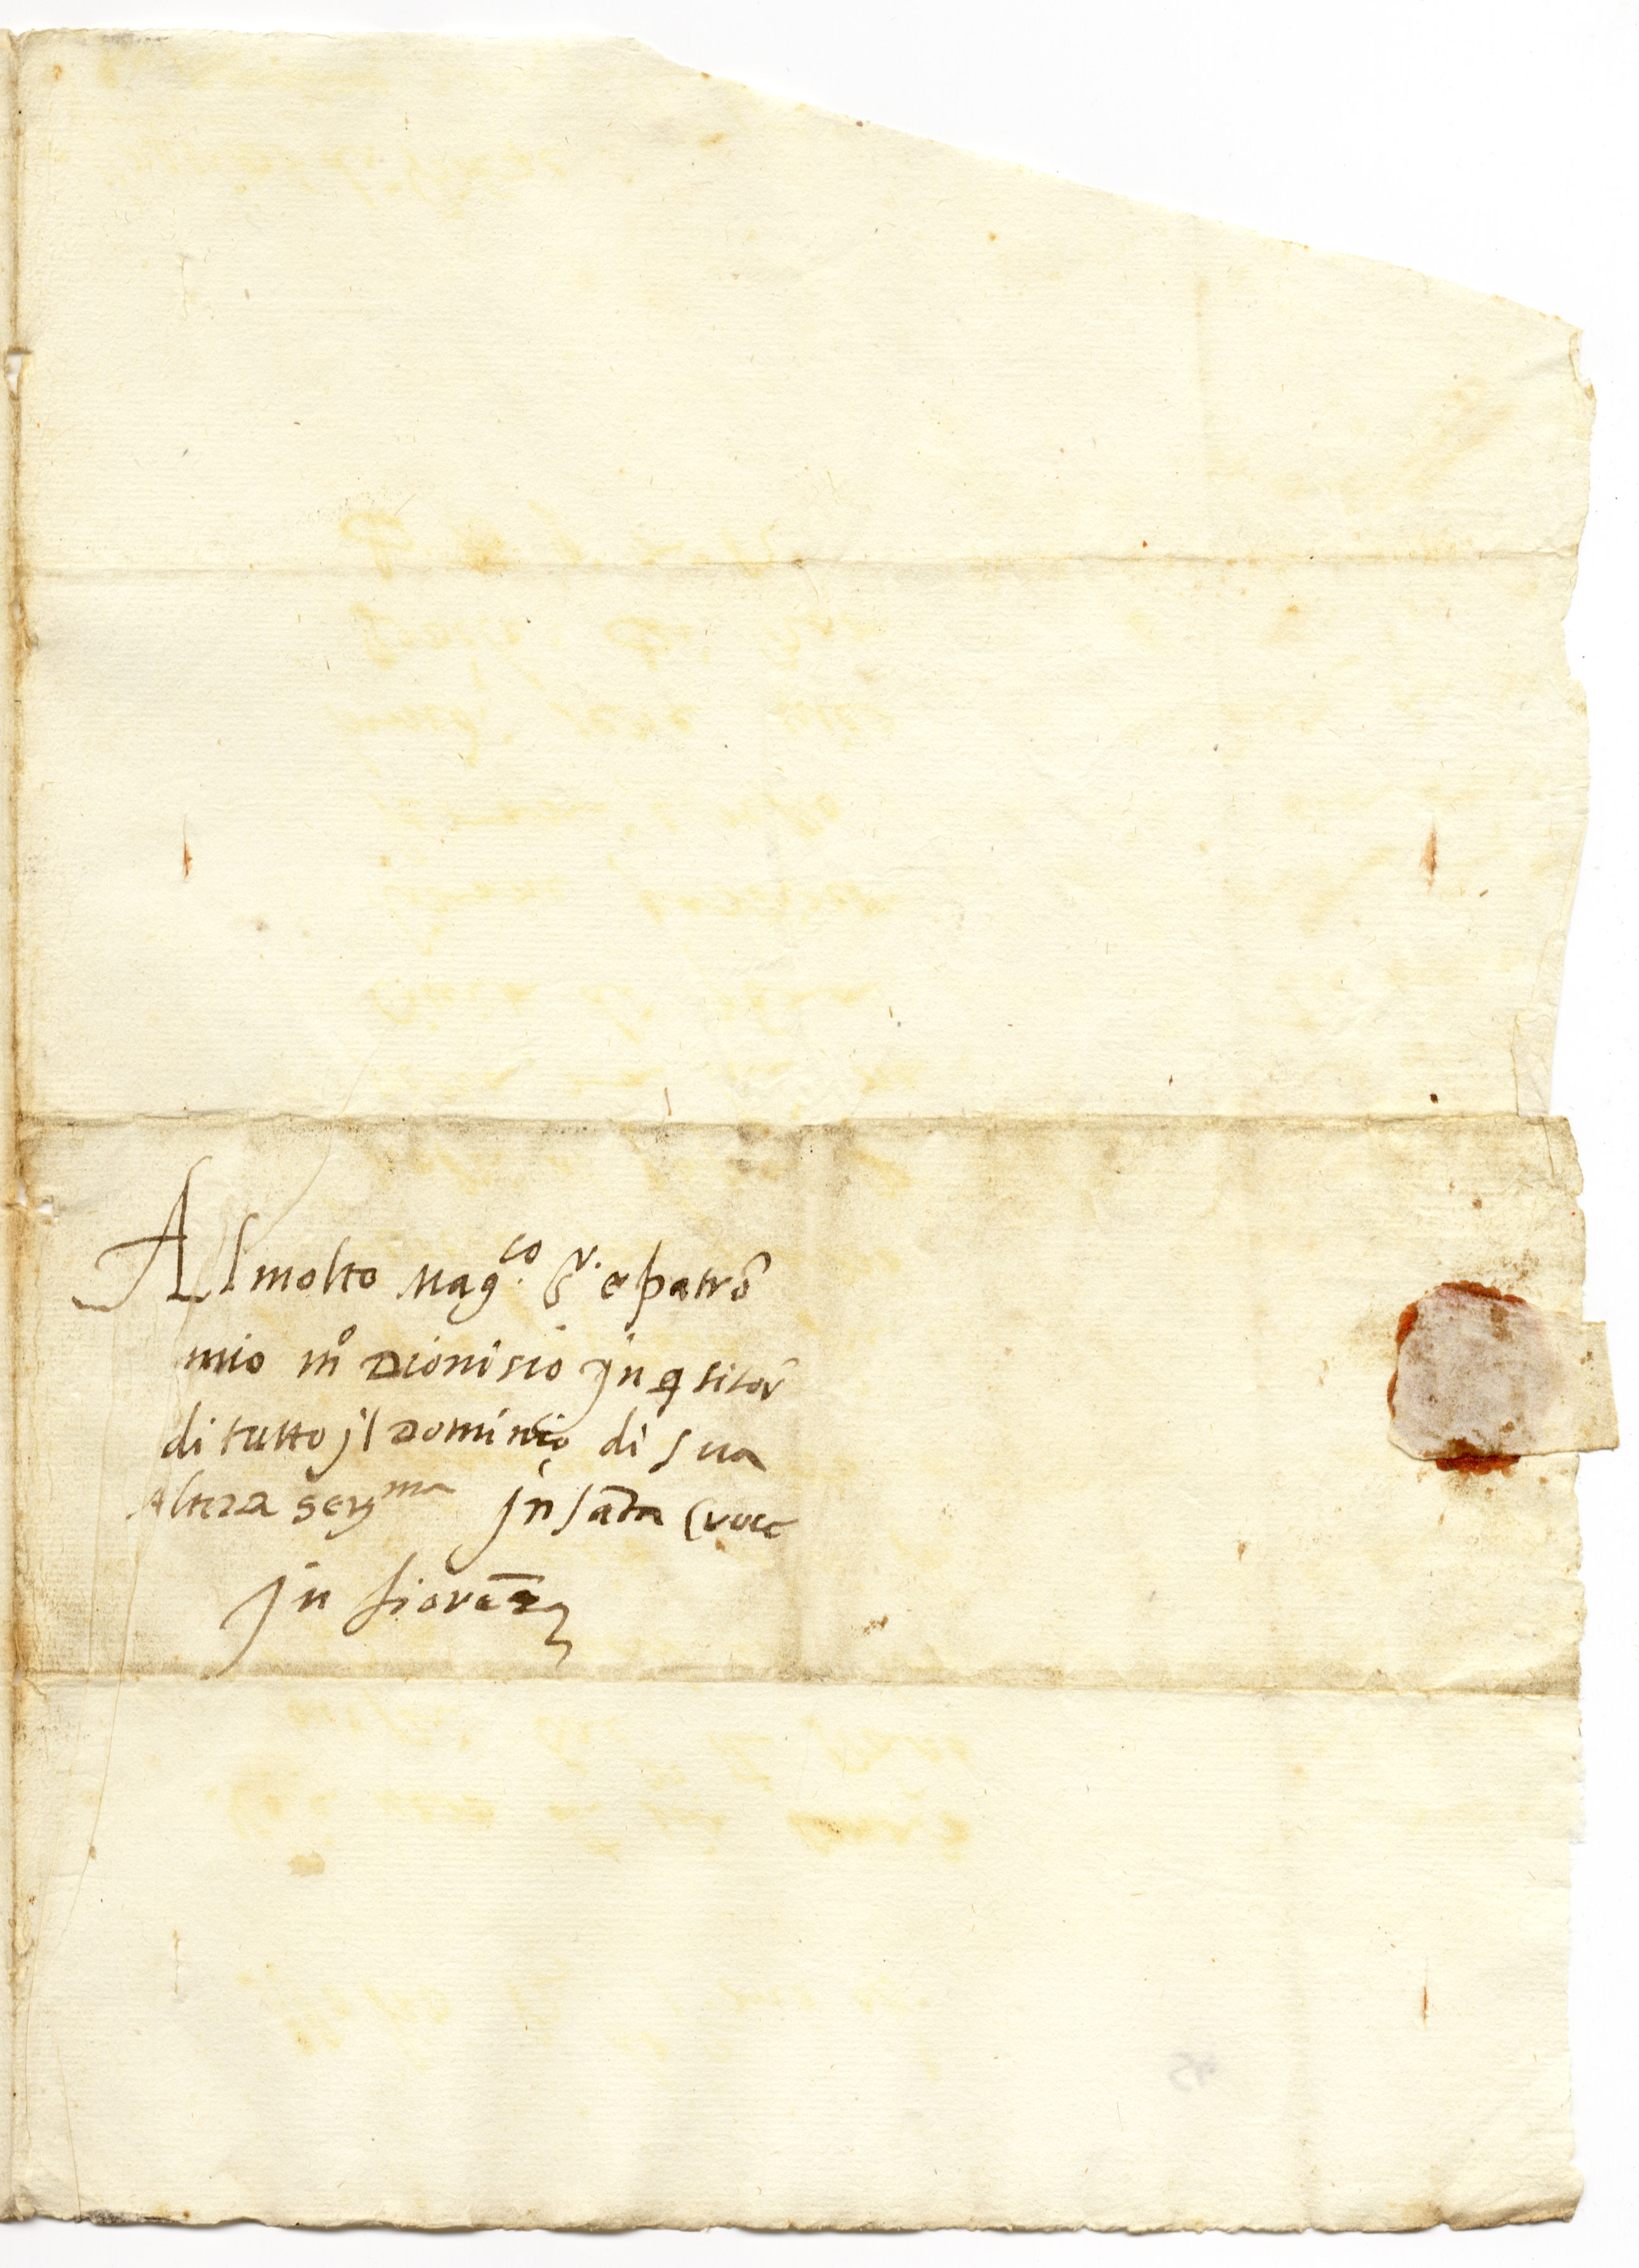 Al molto Mag.co S.r e patrõ
mio m.o Dionisio jnqsitor
di tutto jl Dominio di sua
Alteza Ser.ma jn sãta Croce
jn fiorẽza